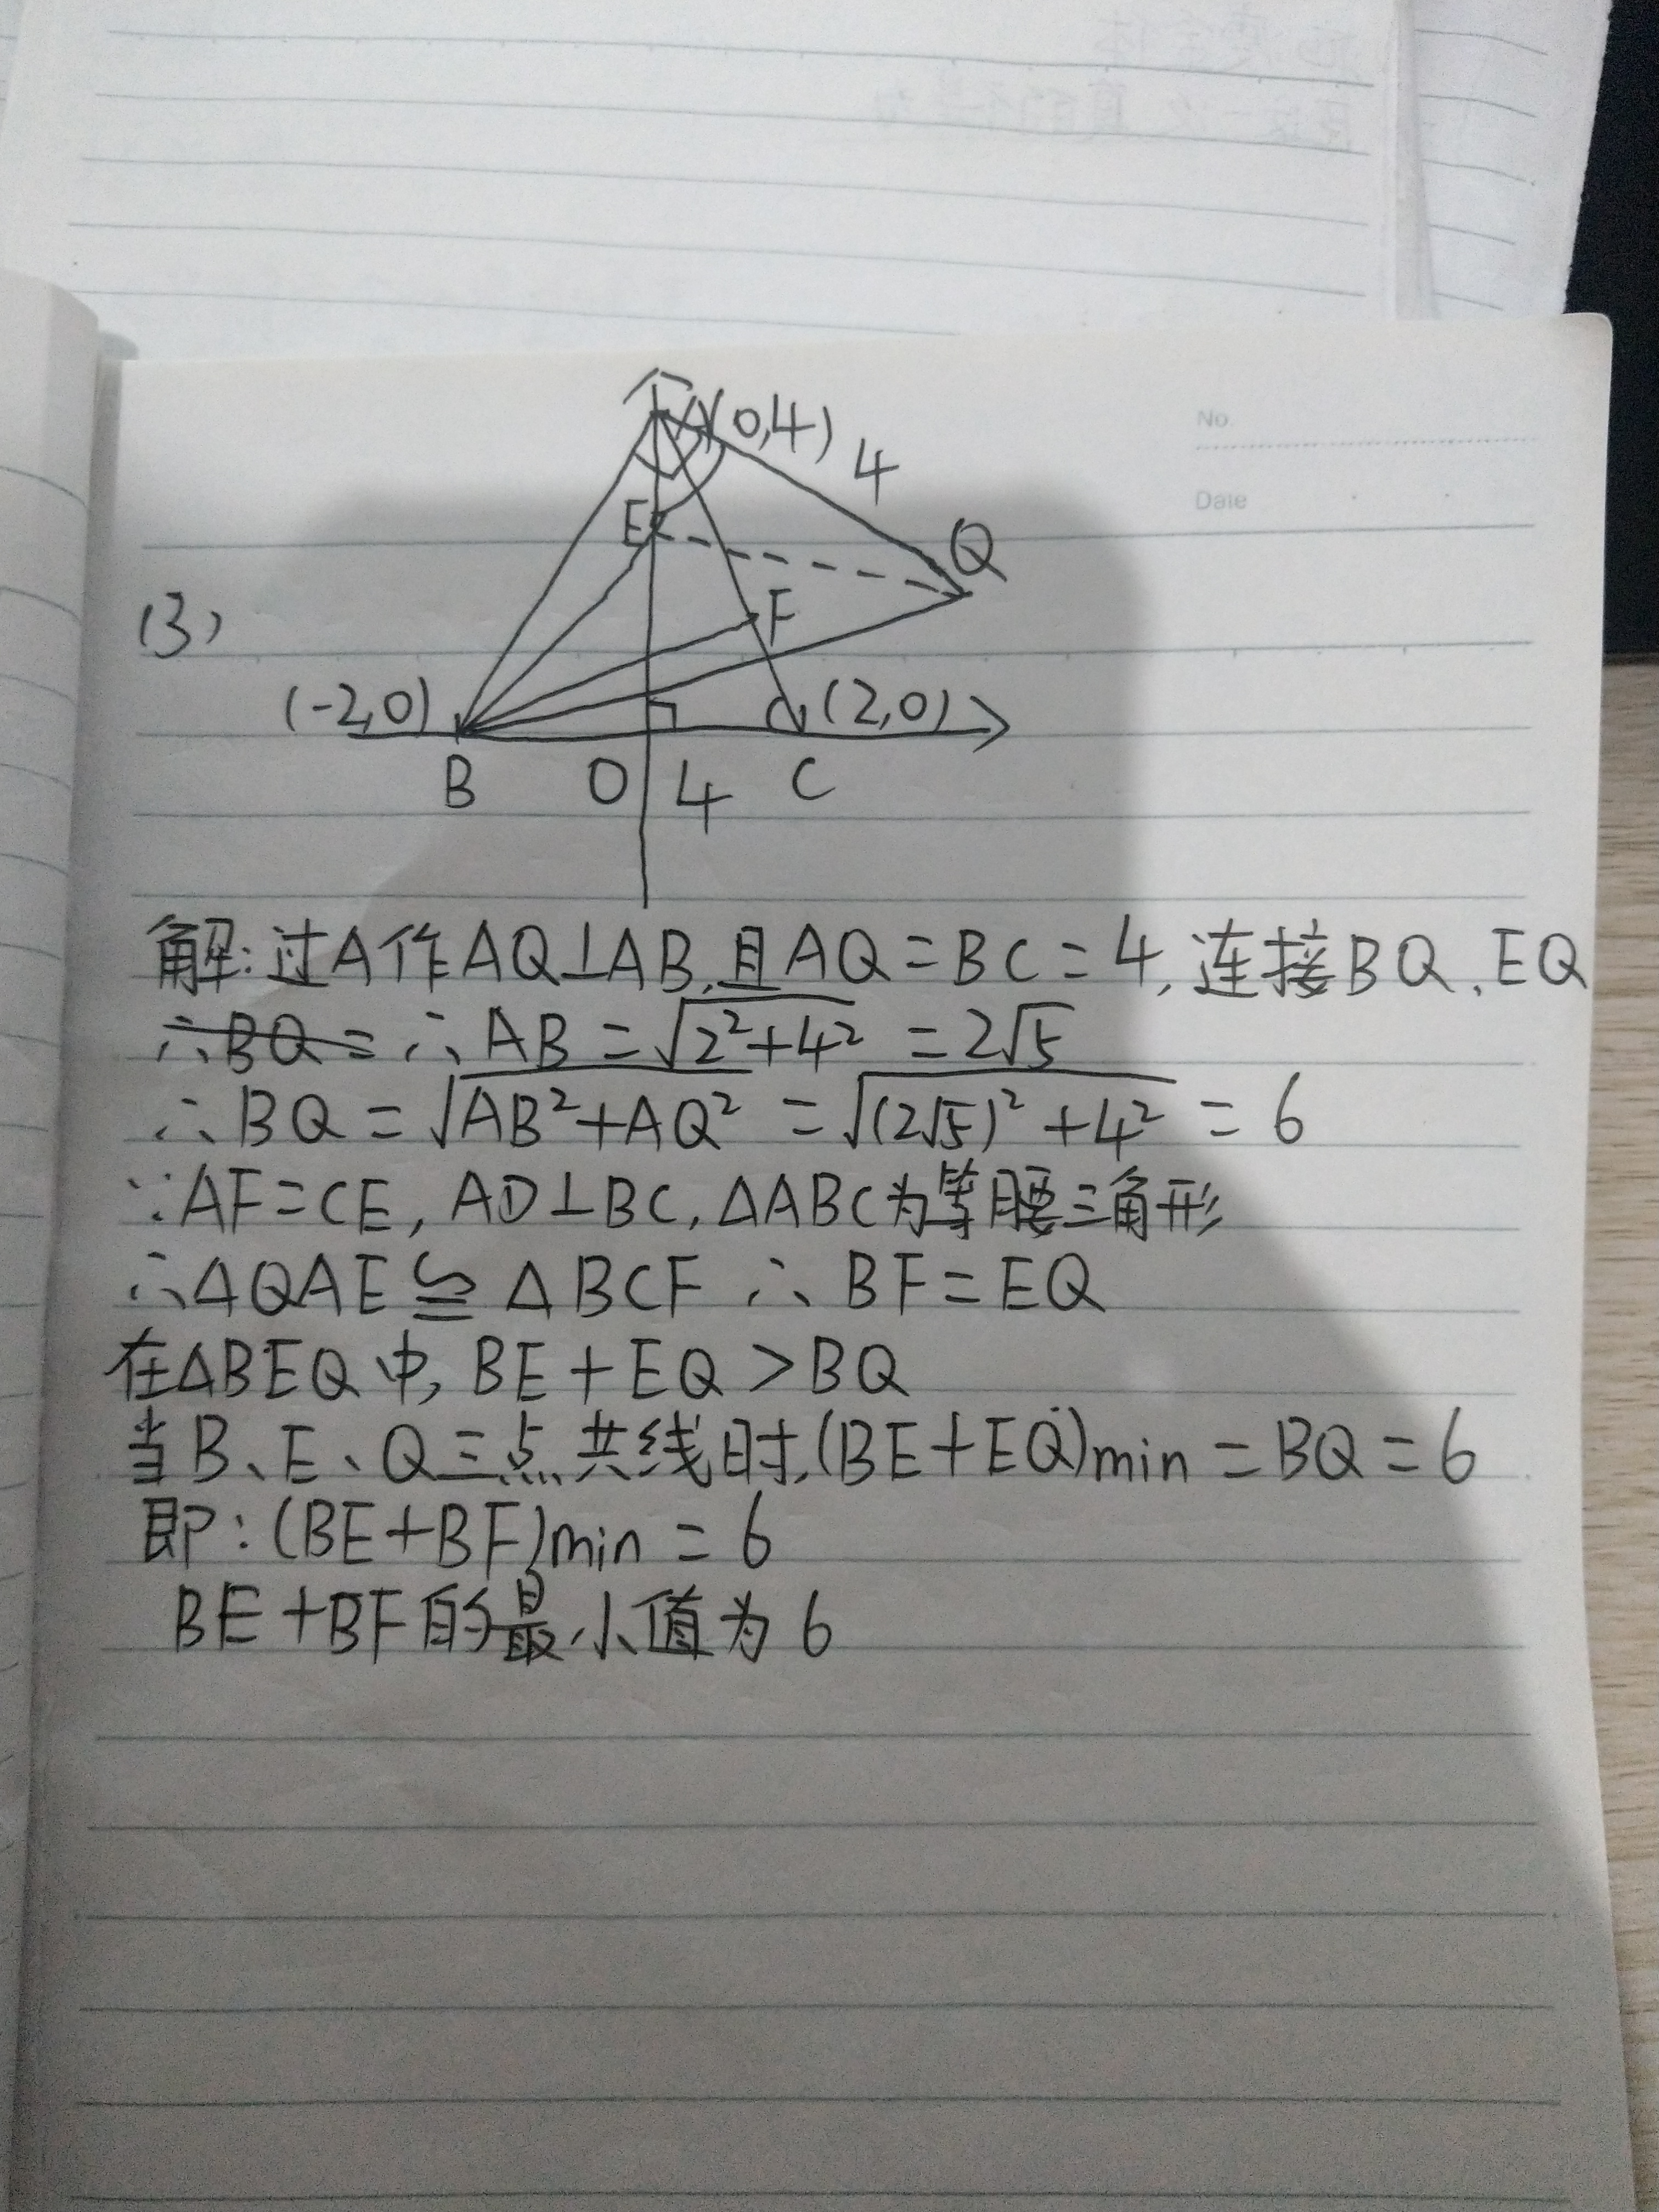 No.
Date
A(0,4)
4
E
Q
F
(3)
(-2,0)
(2,0)
B
O
4
C
解:过A作AQ⊥AB,且AQ=BC=4,连接BQ、EQ
∴BQ= ∴AB=√(2²+4²)=2√5
∴BQ=√(AB²+AQ²)=√((2√5)²+4²)=6
∵AF=CE,AD⊥BC,△ABC为等腰三角形
∴△QAE≌△BCF ∴BF=EQ
在△BEQ中,BE+EQ>BQ
当B、E、Q三点共线时,(BE+EQ)min=BQ=6
即:(BE+BF)min=6
BE+BF的最小值为6